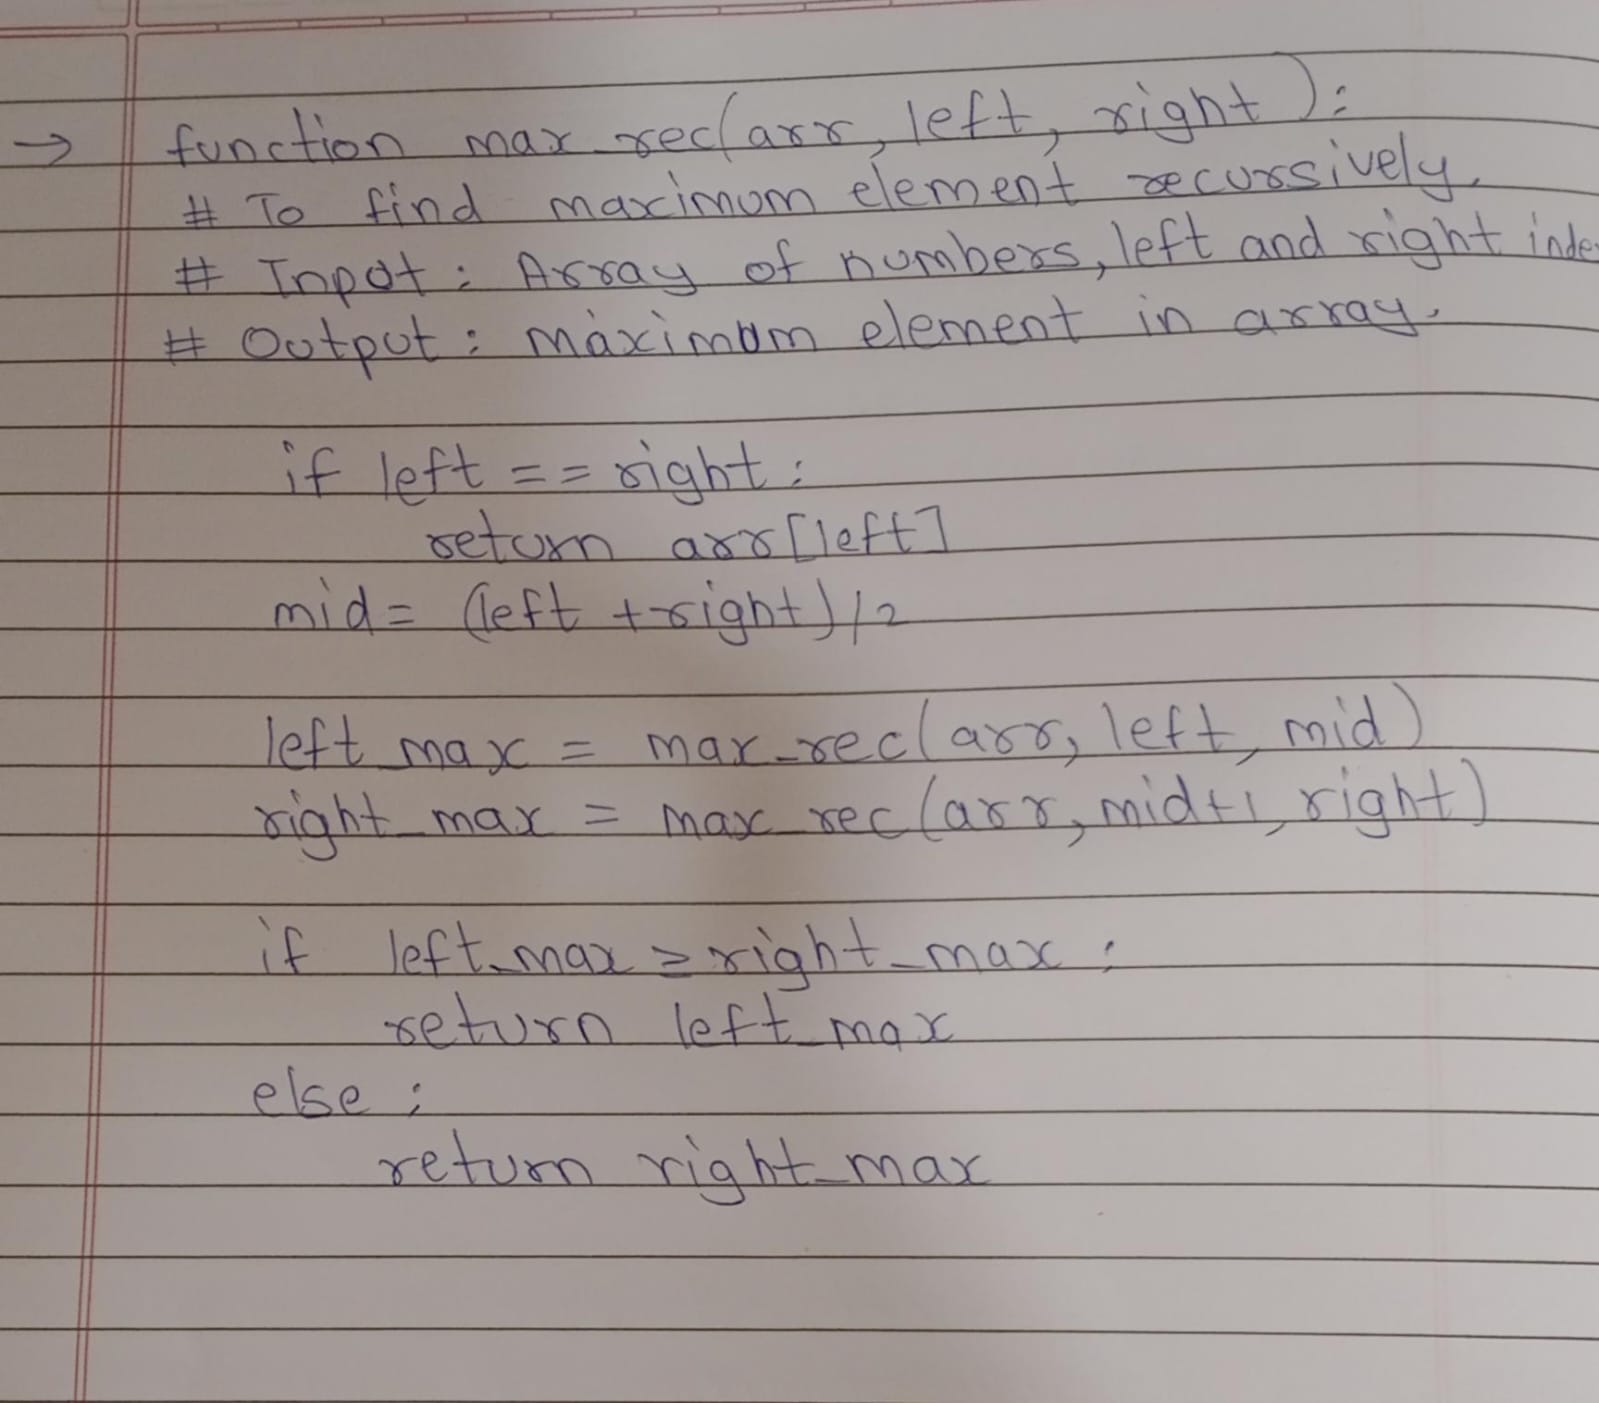 → function max_rec(arr, left, right):
# To find maximum element recursively.
# Input: Array of numbers, left and right inde
# Output: maximum element in array.
if left == right:
return arr[left]
mid = (left + right)/2
left_max = max_rec(arr, left, mid)
right_max = max_rec(arr, mid+1, right)
if left_max ≥ right_max:
return left_max
else:
return right_max